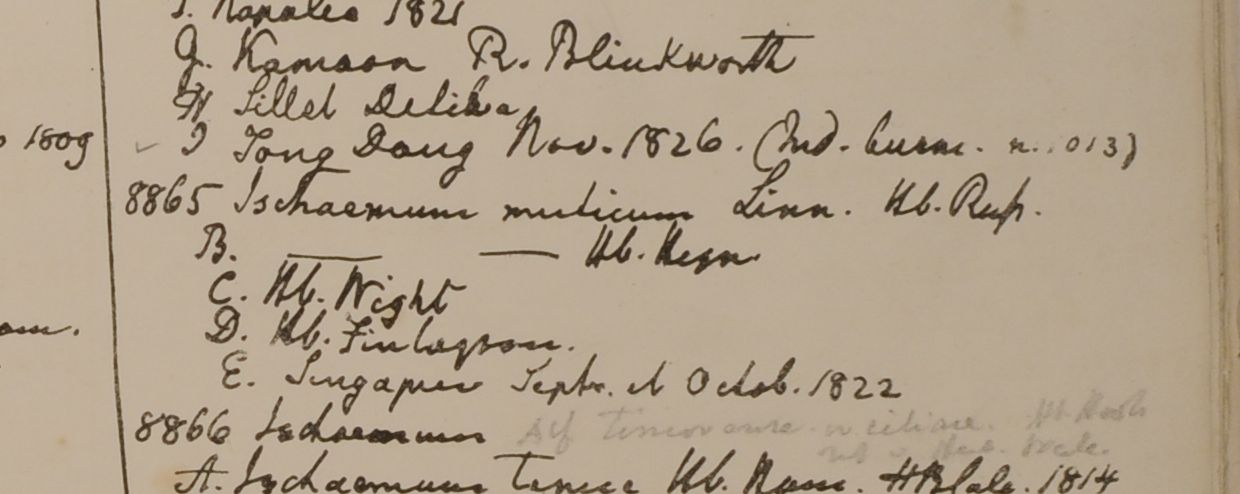 Napalea 1821
G. Kamaon R. Blinkworth
H Sillet Desilva
1809
I Tong Dong Nov. 1826. (Ind. burm. n. 013)
8865 Ischaemum muticum Linn. Hb. Russ.
B. — — Hb. Heyn.
C. Hb. Wight
D. Hb. Finlayson.
E. Singapur Septr. et Octob. 1822
8866 Ischaemum timorense ciliare. Hb.
A. Ischaemum Hb. Ham. 1814